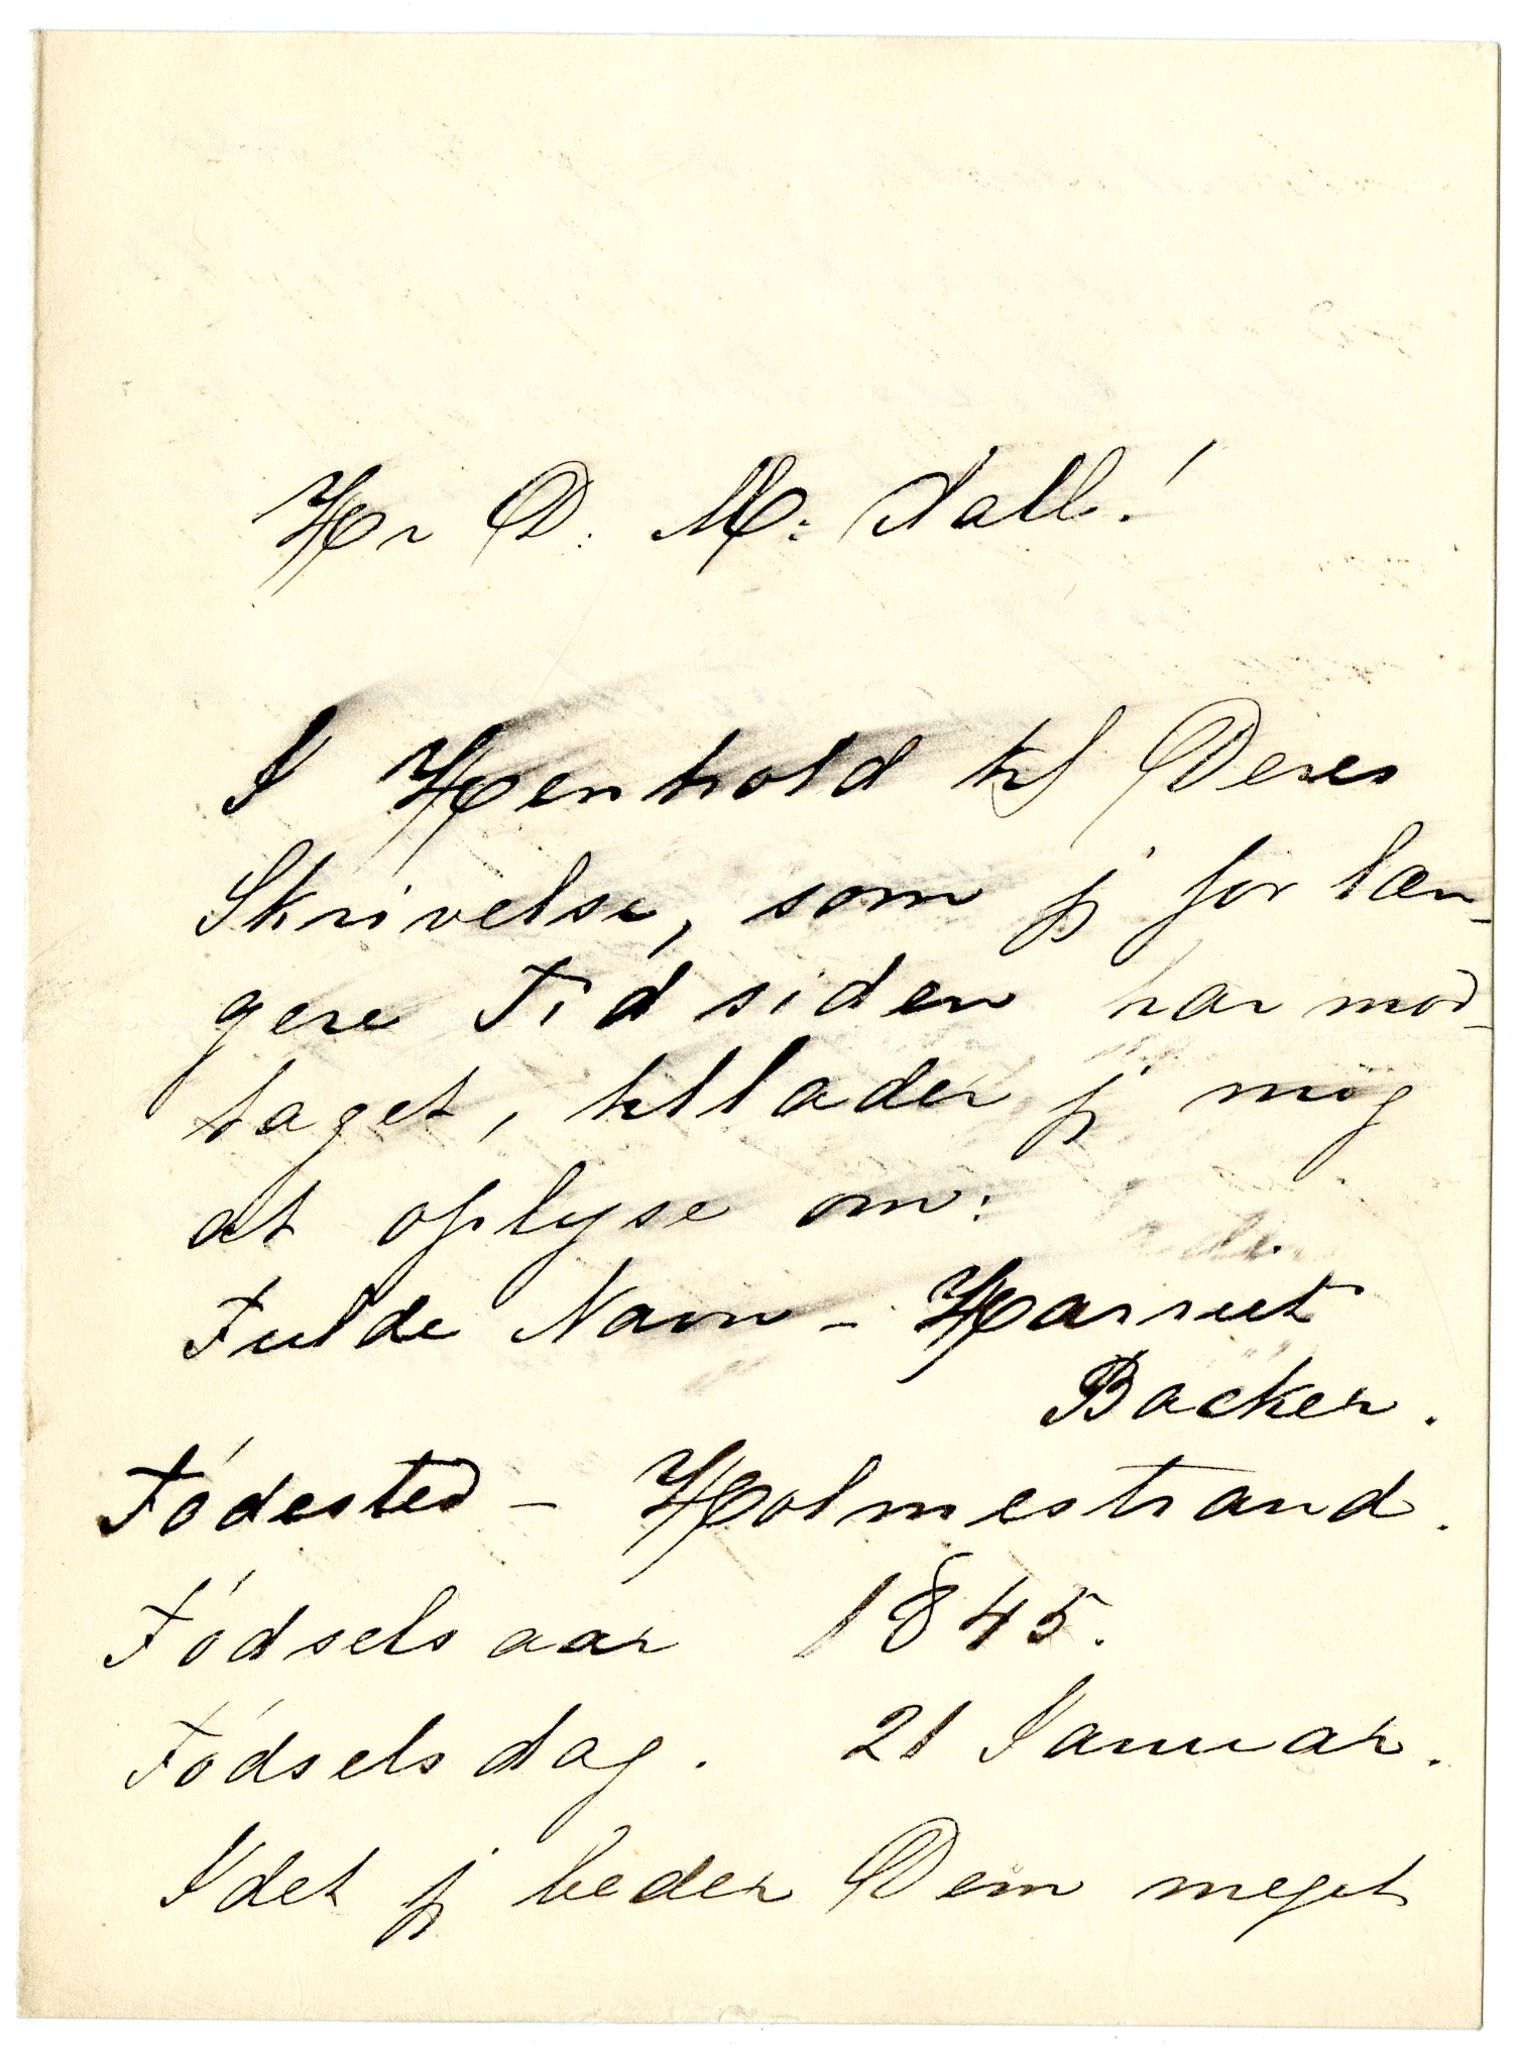 Hr D. M. Aall!
I Henhold til Deres
Skrivelse, som jj for læn-
gere Tid siden har mod-
taget, tillader jj mig
at oplyse om:
Fulde Navn - Harriet
Backer.
Fódested - Holmestrand.
Fódselsaar 1845.
Fódselsdag. 21 Januar.
Idet jj beder Dem meget